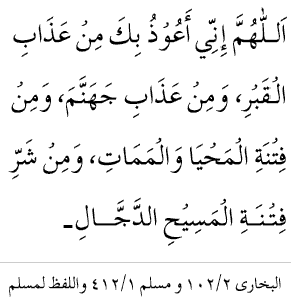 اَللّٰهُمَّ إِنِّي أَعُوْذُ بِكَ مِنْ عَذَابِ
الْقَبْرِ، وَمِنْ عَذَابِ جَهَنَّمَ، وَمِنْ
فِتْنَةِ الْمَحْيَا وَالْمَمَاتِ، وَمِنْ شَرِّ
فِتْنَـةِ الْمَسِيْحِ الدَّجَّـــالِـ
البخارى ١٠٢/٢ و مسلم ٤١٢/١ واللفظ لمسلم